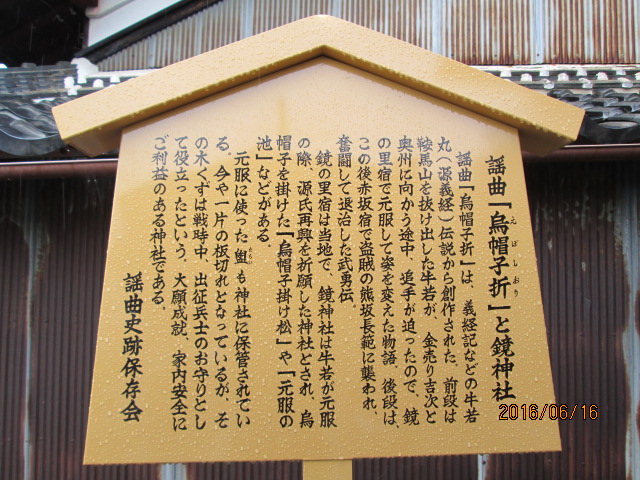 謡曲「烏帽子折」と鏡神社
えぼしおり
謡曲「烏帽子折」は、義経記などの牛若
丸(源義経)伝説から創作された。前段は
鞍馬山を抜け出した牛若が、金売り吉次と
奥州に向かう途中、追手が迫ったので、鏡
の里宿で元服して姿を変えた物語。後段は、
この後赤坂宿で盗賊の熊坂長範に襲われ、
奮闘して退治した武勇伝。
鏡の里宿は当地で、鏡神社は牛若が元服
の際、源氏再興を祈願した神社とされ、烏
帽子を掛けた「烏帽子掛け松」や「元服の
池」などがある。
元服に使った盥も神社に保管されてい
る。今や一片の板切れとなっているが、そ
の木くずは戦時中、出征兵士のお守りとし
て役立ったという。大願成就、家内安全に
ご利益のある神社である。
謡曲史跡保存会
2016/06/16